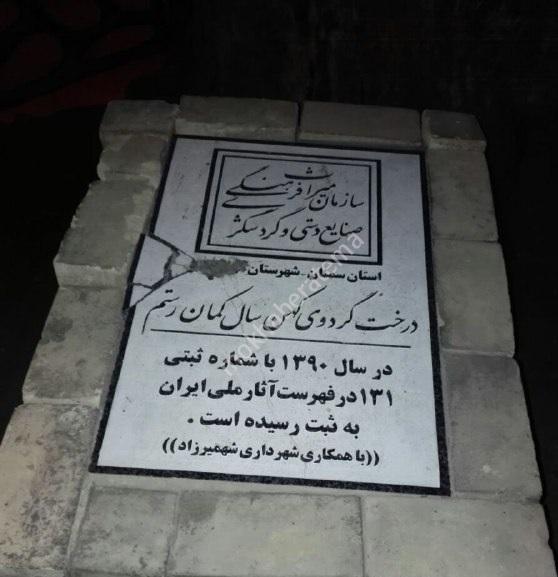 سازمان میراث فرهنگی
صنایع دستی و گردشگری
استان سمنان - شهرستان
درخت گردوی کهن سال کمان رستم
در سال ۱۳۹۰ با شماره ثبتی
۱۳۱ در فهرست آثار ملی ایران
به ثبت رسیده است .
((با همکاری شهرداری شهمیرزاد))